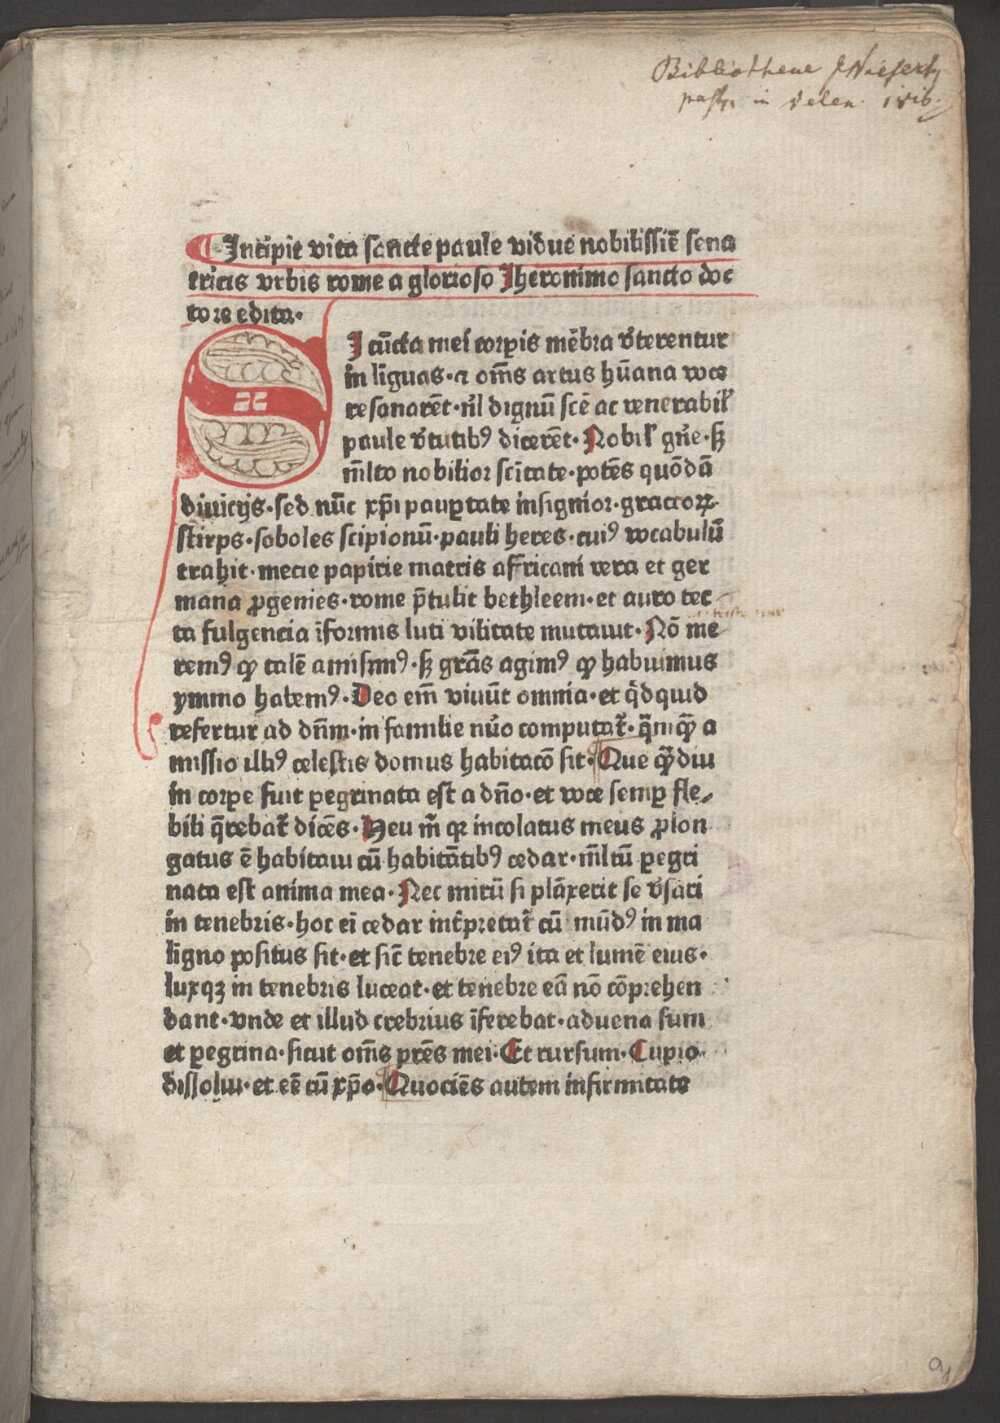 Bibliothecae J Niesert
past. in Velen 1816.
Incipit vita sancte paule vidue nobilissiē sena
tricis vrbis rome a glorioso Jheronimo sancto doc
tore edita·
SI cūcta mei corꝑis mēbra v̄terentur
in linguas·⁊ om̄s artus hūana voce
resonarēt·nīl dignū scē ac venerabil̓
paule v̄tutibꝰ dicerēt·Nobil̓ gn̄e·sꝫ
ml̄to nobilior scītate·potēs quōdā
diuicijs·sed nūc xp̄i pauꝑtate insignior·graccoꝝ
stirps·soboles scipionū·pauli heres·cuiꝰ vocabulū
trahit·mecie papirie matris affricani vera et ger
mana ꝓgenies·rome p̄tulit bethleem·et auro tec
ta fulgencia īformis luti vilitate mutauit·Nō me
remꝰ ꝙ talē amisimꝰ·sꝫ grās agimꝰ ꝙ habuimus
ymmo habemꝰ·Deo em̄ viuūt omnia·et q̇dquid
refertur ad dn̄m·in familie nūo computat̄·q̄mꝙ̄ a
missio illiꝰ celestis domus habitacō sit·Que ꝙ̄diu
in corꝑe fuit ꝑegrinata est a dn̄o·et voce semꝑ fle⸗
bili q̄rebat̄ dicēs·Heu m̄ qꝛ incolatus meus ꝓlon
gatus ē habitaui cū habitātibꝰ cedar·ml̄tū ꝑegri
nata est anima mea·Nec mirū si plāxerit se v̄sari
in tenebris·hoc ei cedar int̄pretat̄ cū mūdꝰ in ma
ligno positus sit·et sic̄ tenebre eiꝰ ita et lumē eius·
luxqꝫ in tenebris luceat·et tenebre eā nō cōprehen
dant·vnde et illud crebrius īferebat·aduena sum
et ꝑegrina·sicut om̄s pr̄es mei·Et rursum·Cupio
dissolui·et eē cū xp̄o·Quociēs autem infirmitate
a1